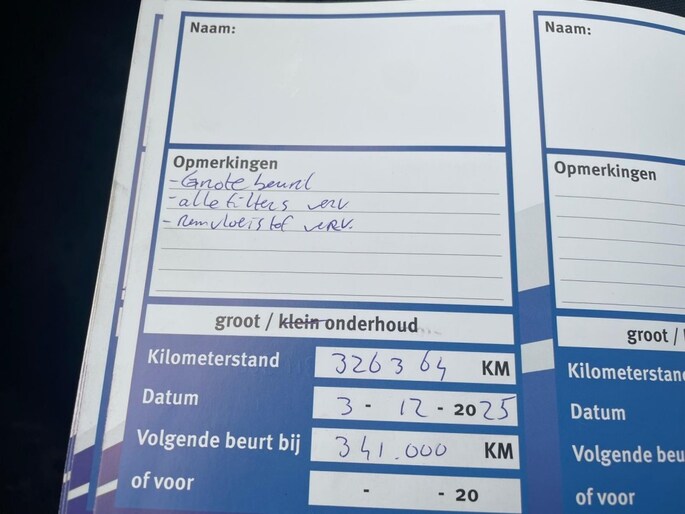 Naam:
Opmerkingen
- Grote beurt
- alle filters verv
- Remvloeistof verv.
groot / klein onderhoud
Kilometerstand 326364 KM
Datum 3 - 12 - 2025
Volgende beurt bij 341.000 KM
of voor - - 20
Naam:
Opmerkingen
groot /
Kilometerstand
Datum
Volgende beu
of voor